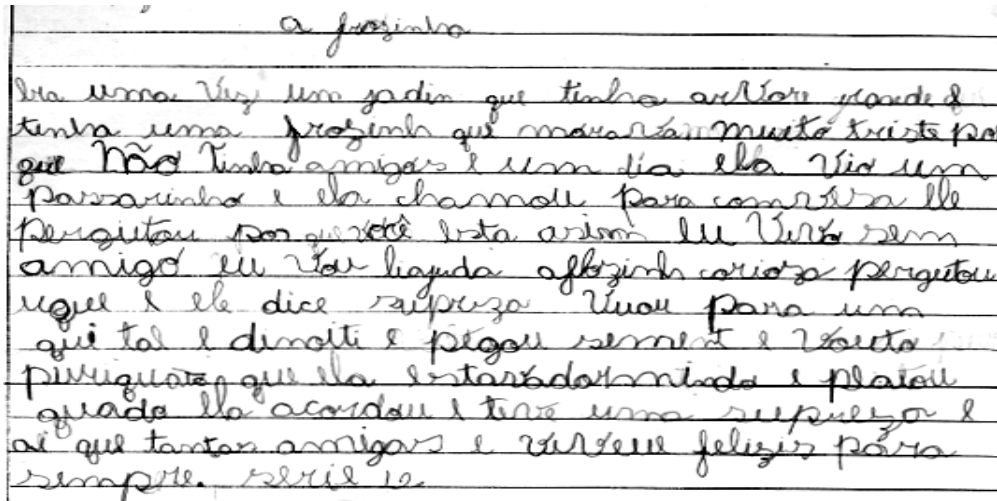 a frozinha
Era uma Vez um jadin que tinha arvore grande e
tenha uma frozinh que morava muito triste po
que não tinha amigos e um dia ela Viu um
passarinho e ela chamou para comvesa ele
pergutou por que você esta asim eu Vivo sem
amigo eu Vou liajuda aflozinh corioza pergutou
uque e ele dice supreza Vuou para um
qui tal e dinoite e pegou sement e Vouto
que ela estava dormindo e platou
quado ela acordou e teve uma supreza e
ai que tantas amigas e viveu felizis para
sempre.